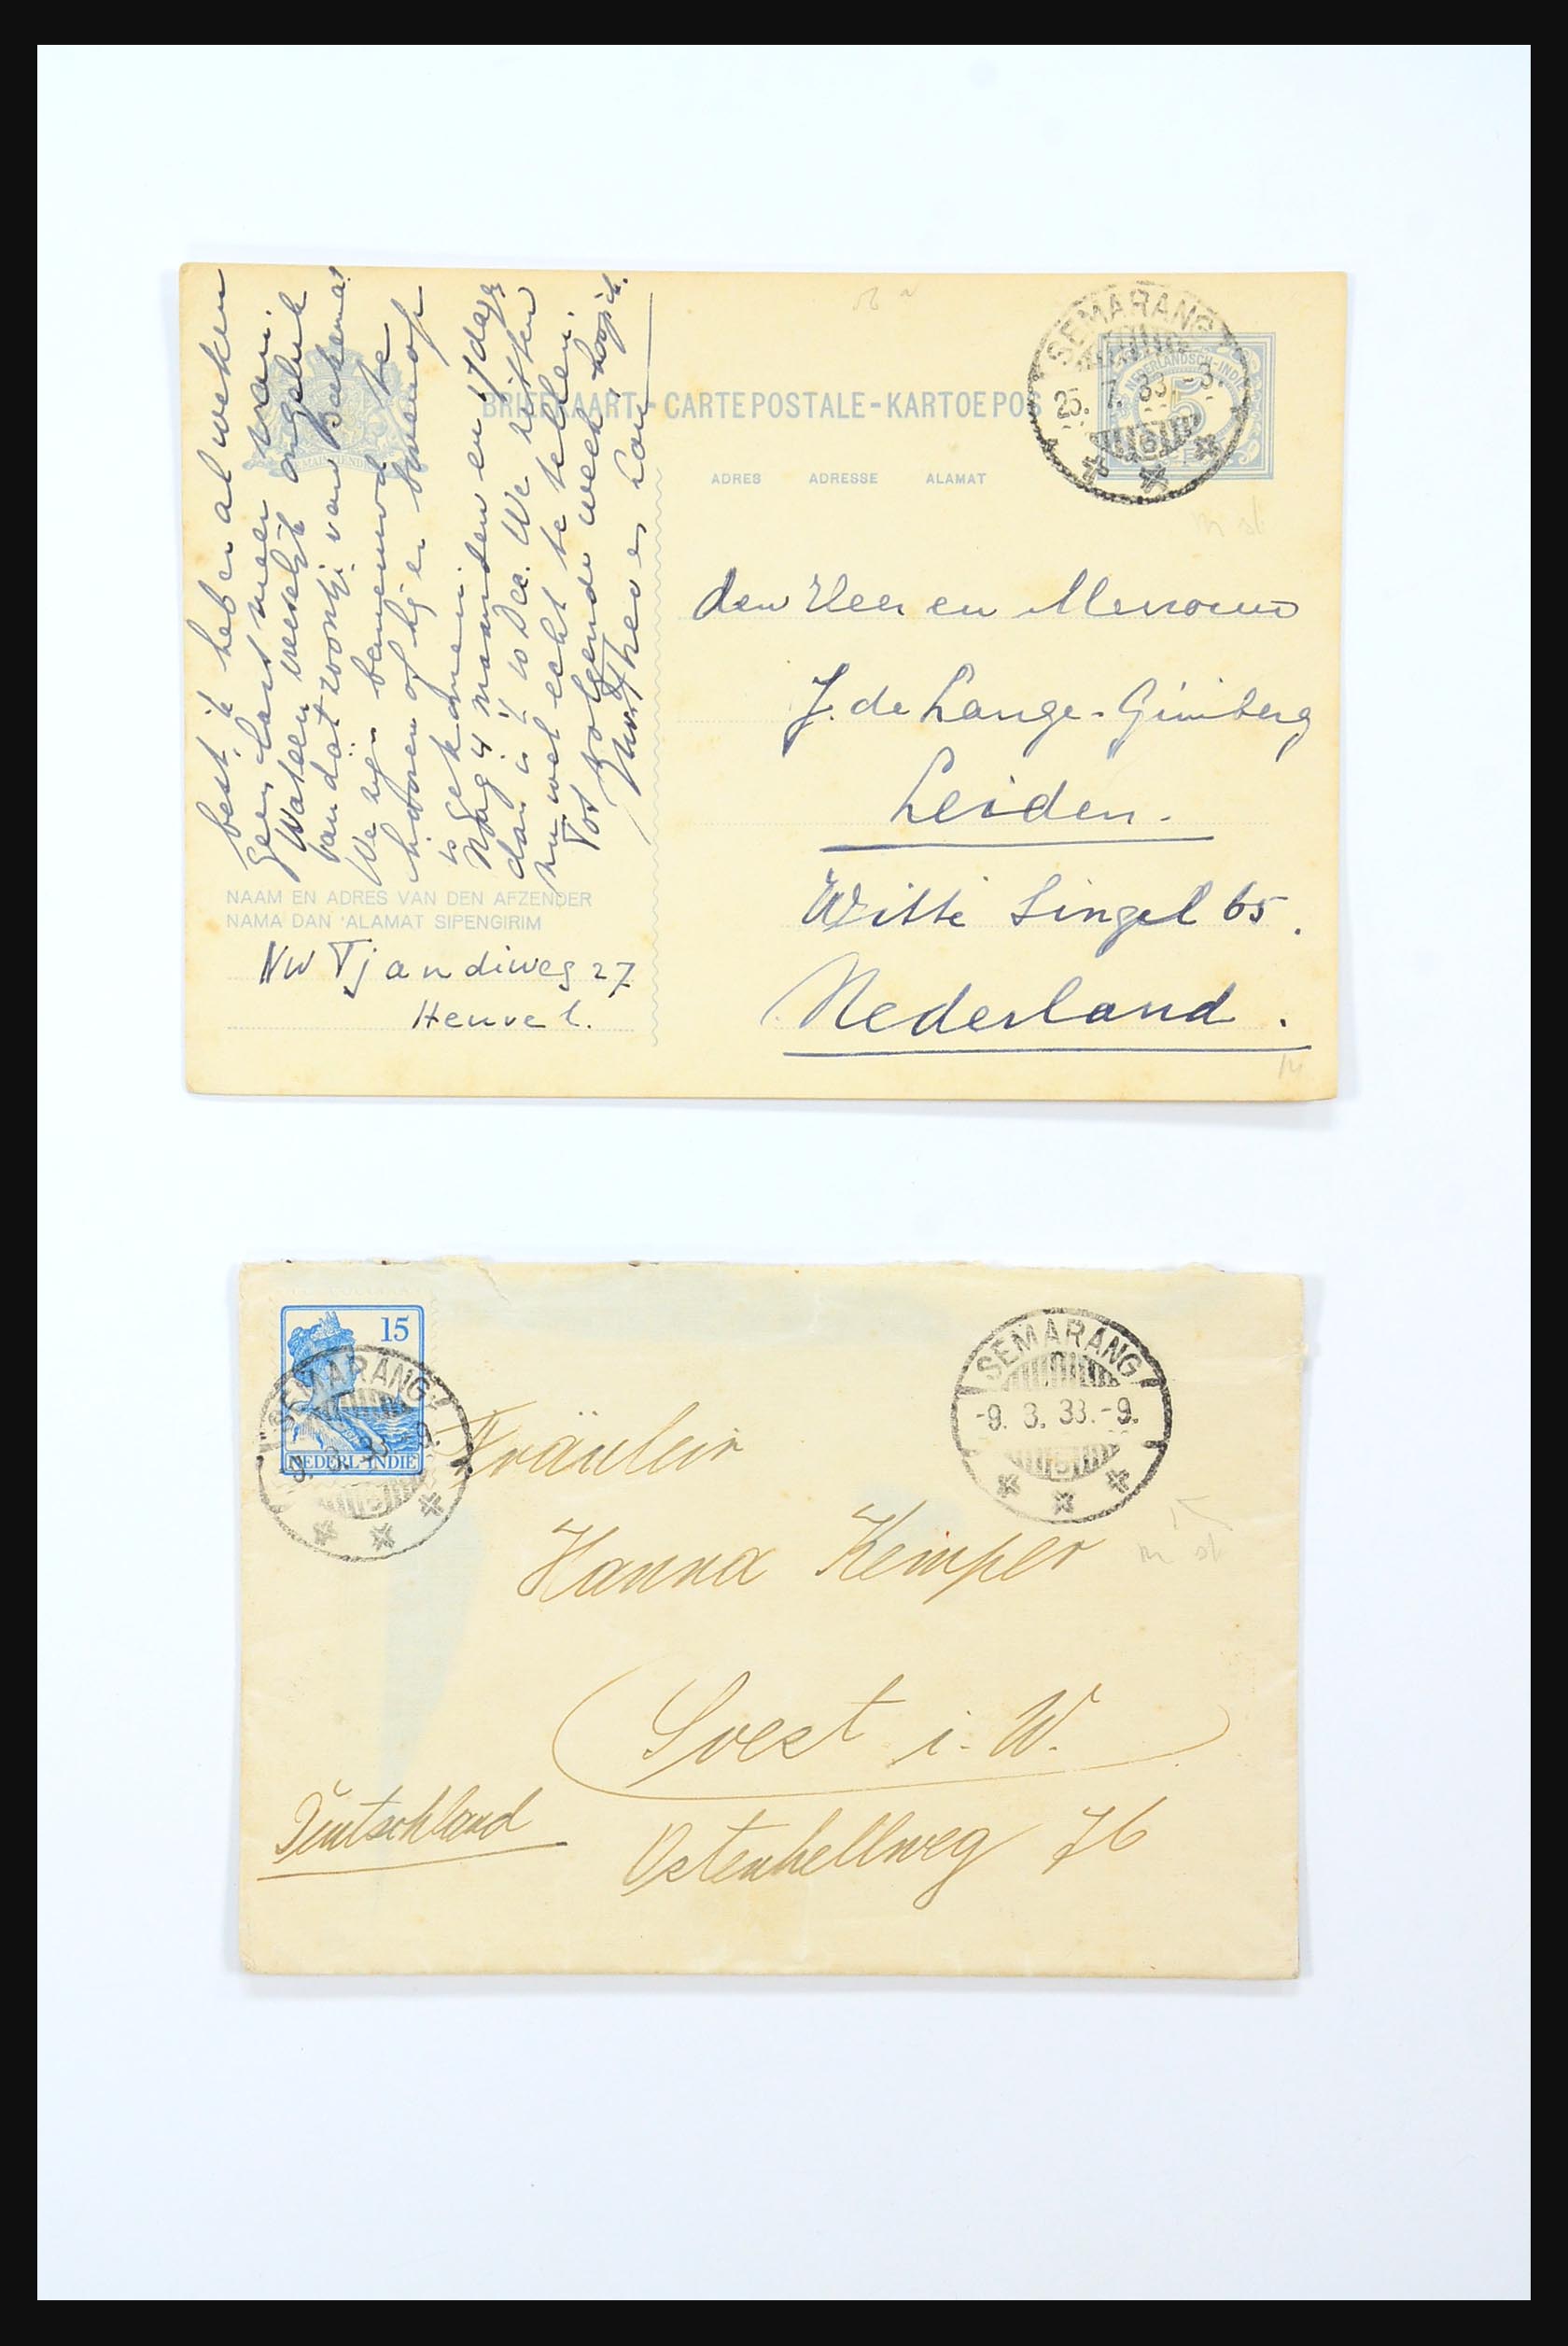 BRIEFKAART-CARTE POSTALE-KARTOEPOS
SEMARANG
25. 7. 33.-3.
NEDERLANDSCH-INDIE
5
ADRES ADRESSE ALAMAT
best. ik heb er al weken
geen last meer van.
Wat een ongeluk
van dat zoontje van
We zijn benieuwd te
hooren of hij er bovenop
is gekomen.
Nog 4 maanden en 17 dagen
dan is 't 10 Dec. We zitten
nu wel echt te tellen.
Tot volgende week hoop ik.
Theo en
NAAM EN ADRES VAN DEN AFZENDER
NAMA DAN 'ALAMAT SIPENGIRIM
NW Tjandiweg 27
Heuvel.
den Heer en Mevrouw
J. de Lange-Gimberg
Leiden.
Witte Singel 65.
Nederland.
15
NEDERL-INDIE
SEMARANG
9. 3. 33.-9.
SEMARANG
-9. 3. 33.-9.
Fräulein
Hanna Kemper
Soest i. W.
Deutschland
Ostenhellweg 76